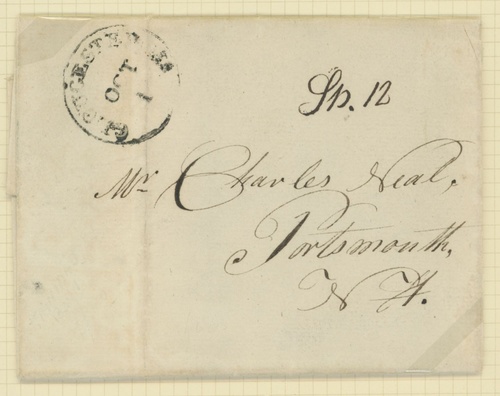 GLOUCESTER MS
OCT
1
Sh. 12
Mr Charles Neal.
Portsmouth,
N H.